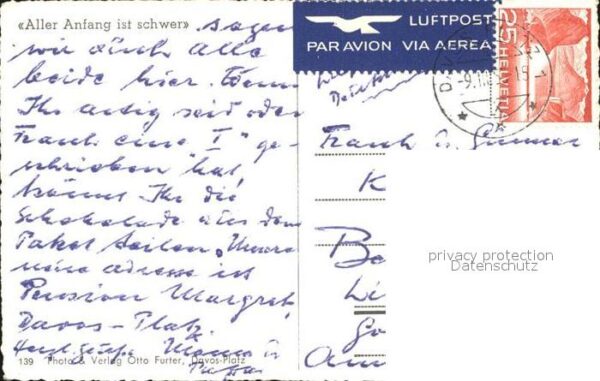 «Aller Anfang ist schwer» sagen
wir auch alle
beide hier. Wenn
Ihr artig seid oder
Frank eine I ge-
schrieben hat,
könnt Ihr die
Schokolade aus dem
Paket teilen. Unsere
neue Adresse ist
Pension Margret,
Davos-Platz.
Herzl. Grüße Mama u
Papa
139 Photo & Verlag Otto Furter, Davos-Platz
LUFTPOST
PAR AVION VIA AEREA
25
HELVETIA
Frank u.
K
Be
Li
Go
Am
privacy protection
Datenschutz